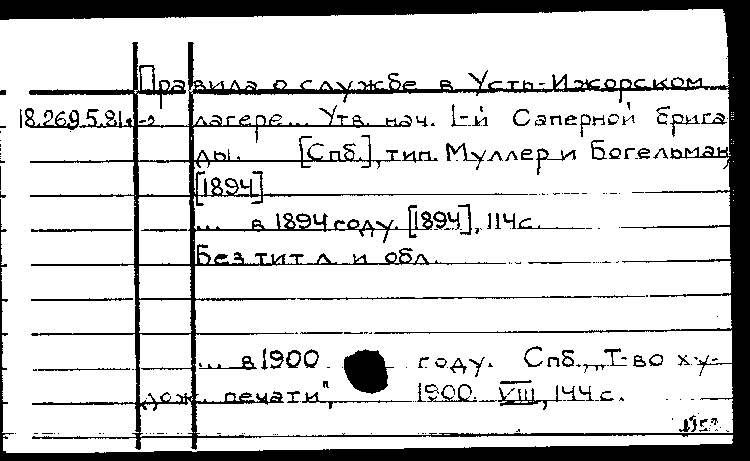 Правила о службе в Усть-Ижорском
18.269.5.81.-2 лагере... Утв. нач. 1-й Саперной брига
ды. [Спб.], тип. Муллер и Богельман,
[1894]
... в 1894 году. [1894], 114 с.
Без тит л. и обл.
... в 1900 году. Спб., „Т-во ху-
дож. печати", 1900. VIII, 144 с.